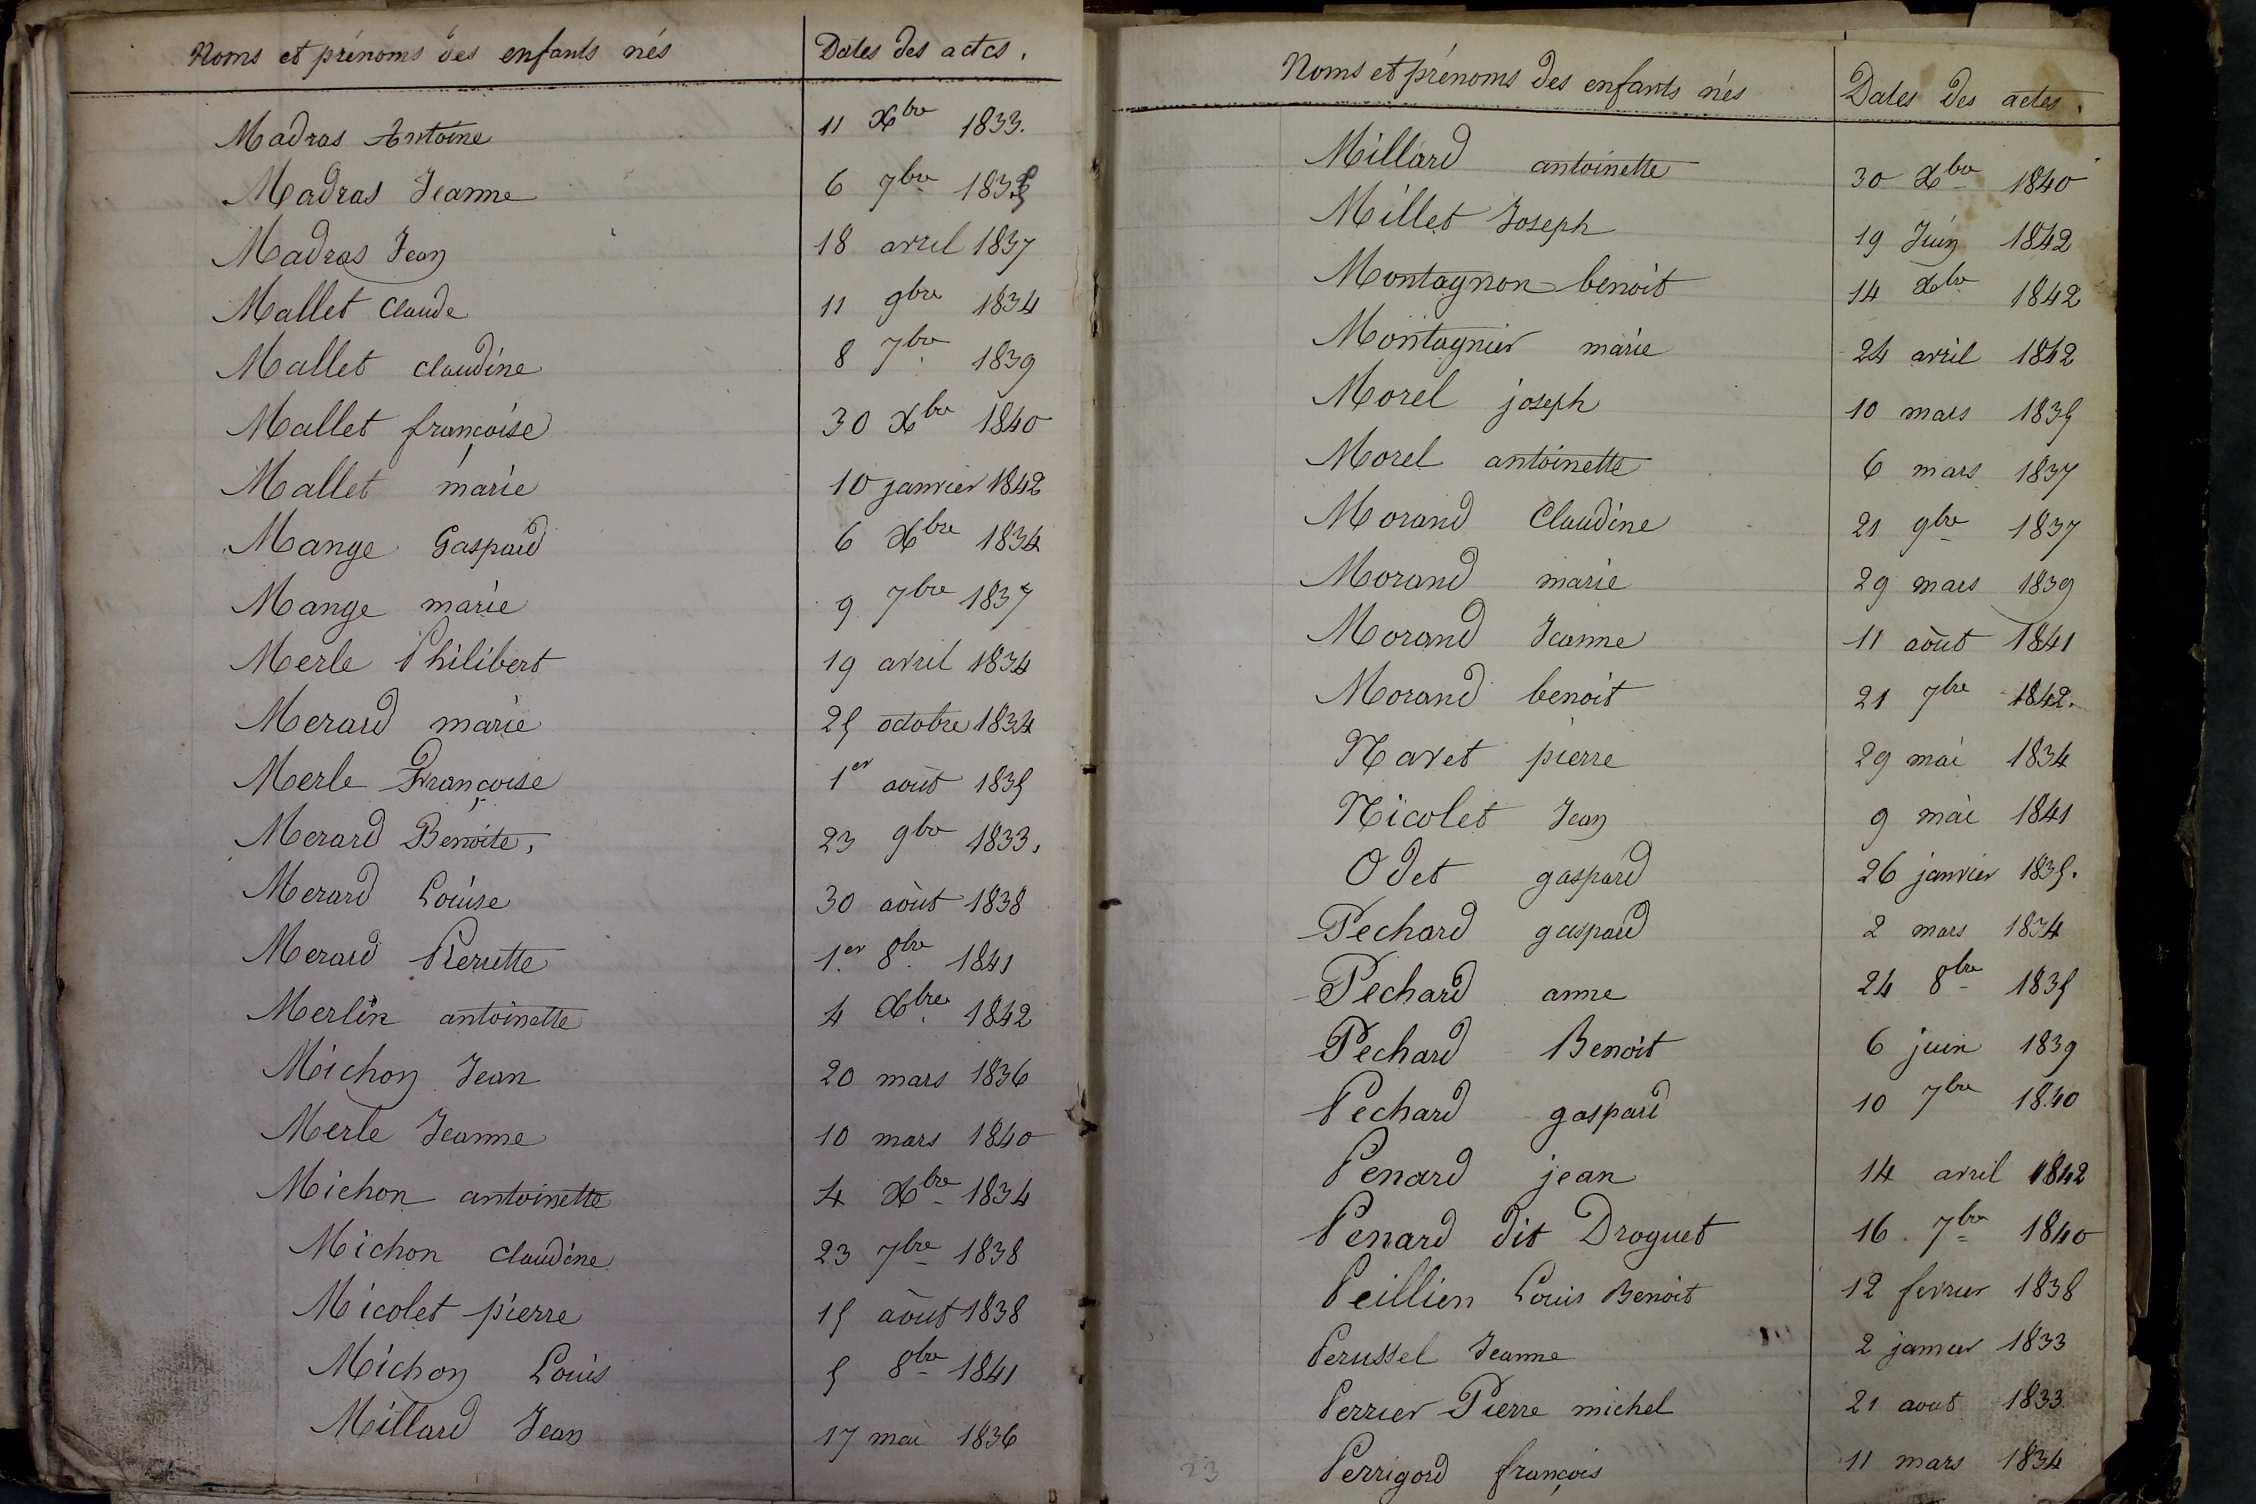 Noms et prénoms des enfants nés Dates des actes.
Madras Antoine 11 Xbre 1833.
Madras Jeanne 6 7bre 1835
Madras Jean 18 avril 1837
Mallet Claude 11 9bre 1834
Mallet claudine 8 7bre 1839
Mallet françoise 30 Xbre 1840
Mallet marie 10 janvier 1842
Mange Gaspard 6 Xbre 1834
Mange marie 9 7bre 1837
Merle Philibert 19 avril 1834
Merard marie 25 octobre 1834
Merle Françoise 1er août 1835
Merard Benoite, 23 9bre 1833,
Merard Louise 30 août 1838
Merard Pierrette 1er 8bre 1841
Merlin antoinette 4 Xbre 1842
Michon Jean 20 mars 1836
Merle Jeanne 10 mars 1840
Michon antoinette 4 Xbre 1834
Michon claudine 23 7bre 1838
Micolet pierre 15 août 1838
Michon Louis 5 8bre 1841
Millard Jean 17 mai 1836
Noms et prénoms des enfants nés Dates des actes.
Millard antoinette 30 Xbre 1840
Millet Joseph 19 Juin 1842
Montagnon benoit 14 Xbre 1842
Montagnier marie 24 avril 1842
Morel joseph 10 mars 1835
Morel antoinette 6 mars 1837
Morand Claudine 21 9bre 1837
Morand marie 29 mars 1839
Morand Jeanne 11 août 1841
Morand benoit 21 7bre 1842.
Navet pierre 29 mai 1834
Nicolet Jean 9 mai 1841
Odet gaspard 26 janvier 1835.
Pechard gaspard 2 mars 1834
Pechard anne 24 8bre 1835
Pechard Benoit 6 juin 1839
Pechard gaspard 10 7bre 1840
Penard jean 14 avril 1842
Penard dit Droguet 16 7bre 1840
Peillien Louis Benoit 12 fevrier 1838
Perussel Jeanne 2 janvier 1833
Perrier Pierre michel 21 aout 1833
Perrigord françois 11 mars 1834
23